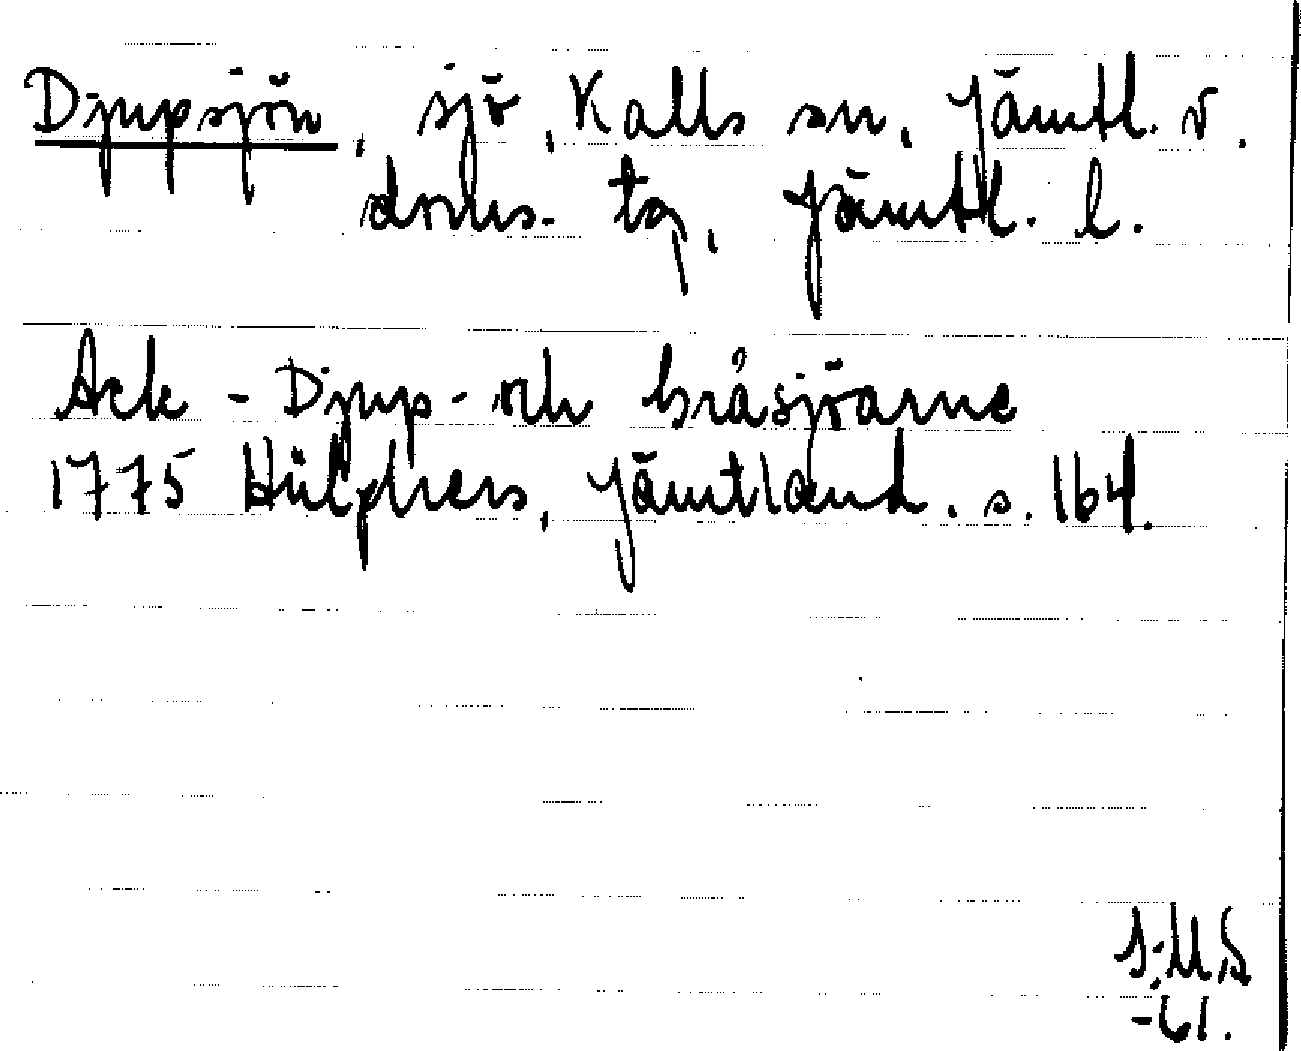 Djupsjön, sjö, Kalls sn, Jämtl. v.
doms. tg, Jämtl. l.
Ack - Djup- och bråsjöarne
1775 Hülphers, Jämtland. s. 164.
S:MS
-61.